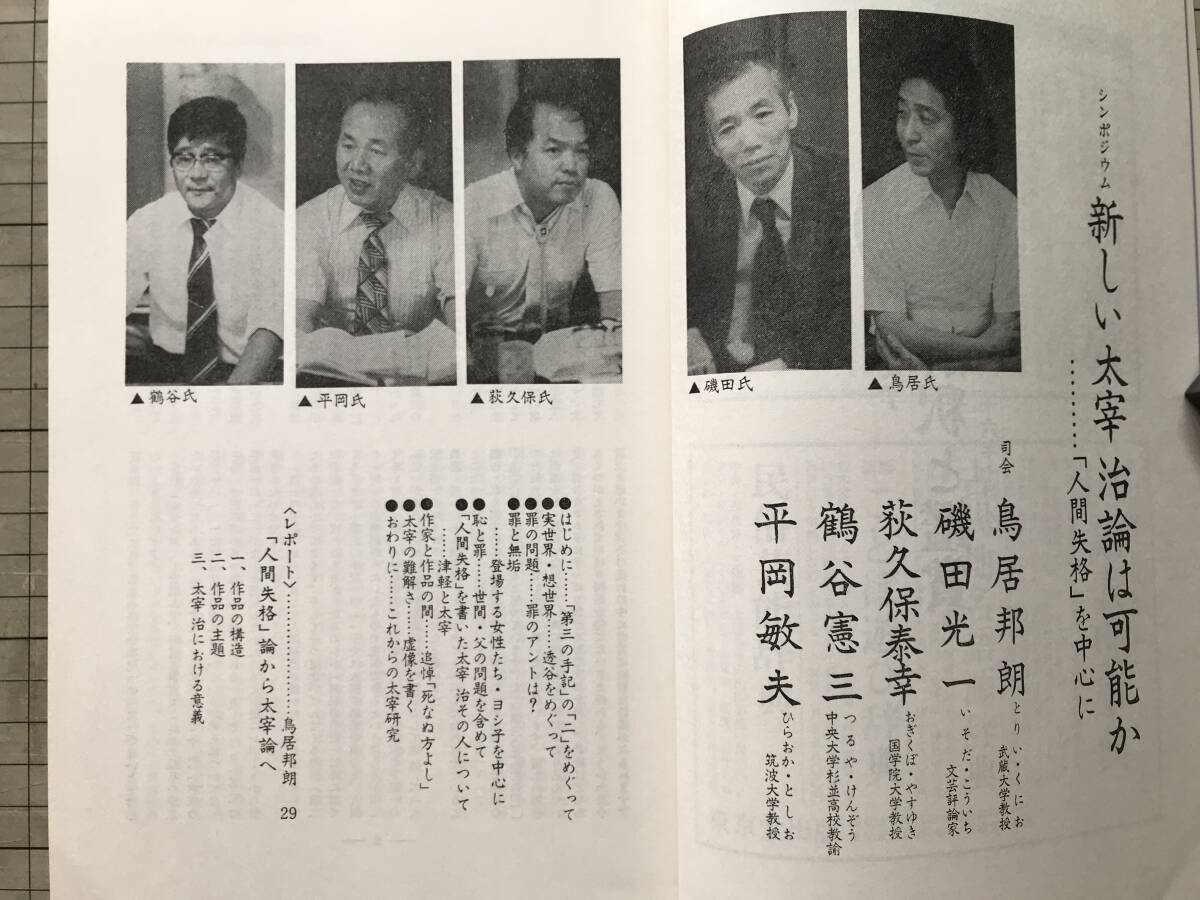 シンポジウム 新しい太宰 治論は可能か
…………「人間失格」を中心に
司会 鳥居邦朗 とりい・くにお 武蔵大学教授
磯田光一 いそだ・こういち 文芸評論家
荻久保泰幸 おぎくぼ・やすゆき 国学院大学教授
鶴谷憲三 つるや・けんぞう 中央大学杉並高校教諭
平岡敏夫 ひらおか・としお 筑波大学教授
▲鳥居氏
▲磯田氏
▲荻久保氏
▲平岡氏
▲鶴谷氏
はじめに……「第三の手記」の「二」をめぐって
実世界・想世界……透谷をめぐって
罪の問題……罪のアントは?
罪と無垢
……登場する女性たち・ヨシ子を中心に
恥と罪……世間・父の問題を含めて
「人間失格」を書いた太宰 治その人について
……津軽と太宰
作家と作品の間……追悼「死なぬ方よし」
太宰の難解さ……虚像を書く
おわりに……これからの太宰研究
〈レポート〉…………………鳥居邦朗
「人間失格」論から太宰論へ 29
一、作品の構造
二、作品の主題
三、太宰 治における意義